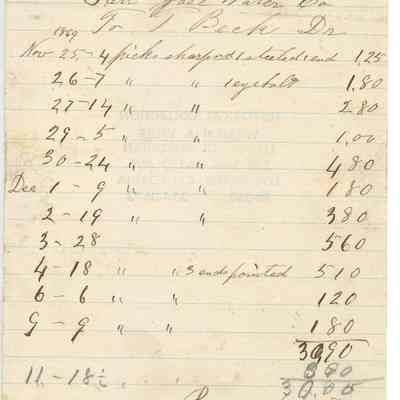 San Jose Water Co
1889 To T Beck Dr
Nov 25 - 4 picks sharpd 1 steeled 1 end 1,25
26 - 7 " " 1 eyebolt 1,80
27 - 14 " " 2 80
29 - 5 " " 1,00
30 - 24 " " 4 80
Dec 1 - 9 " " 1 80
2 - 19 " " 3 80
3 - 28 5 60
4 - 18 " " 3 ends pointed 5 10
6 - 6 " " 1 20
9 - 9 " " 1 80
30,95
11 - 18